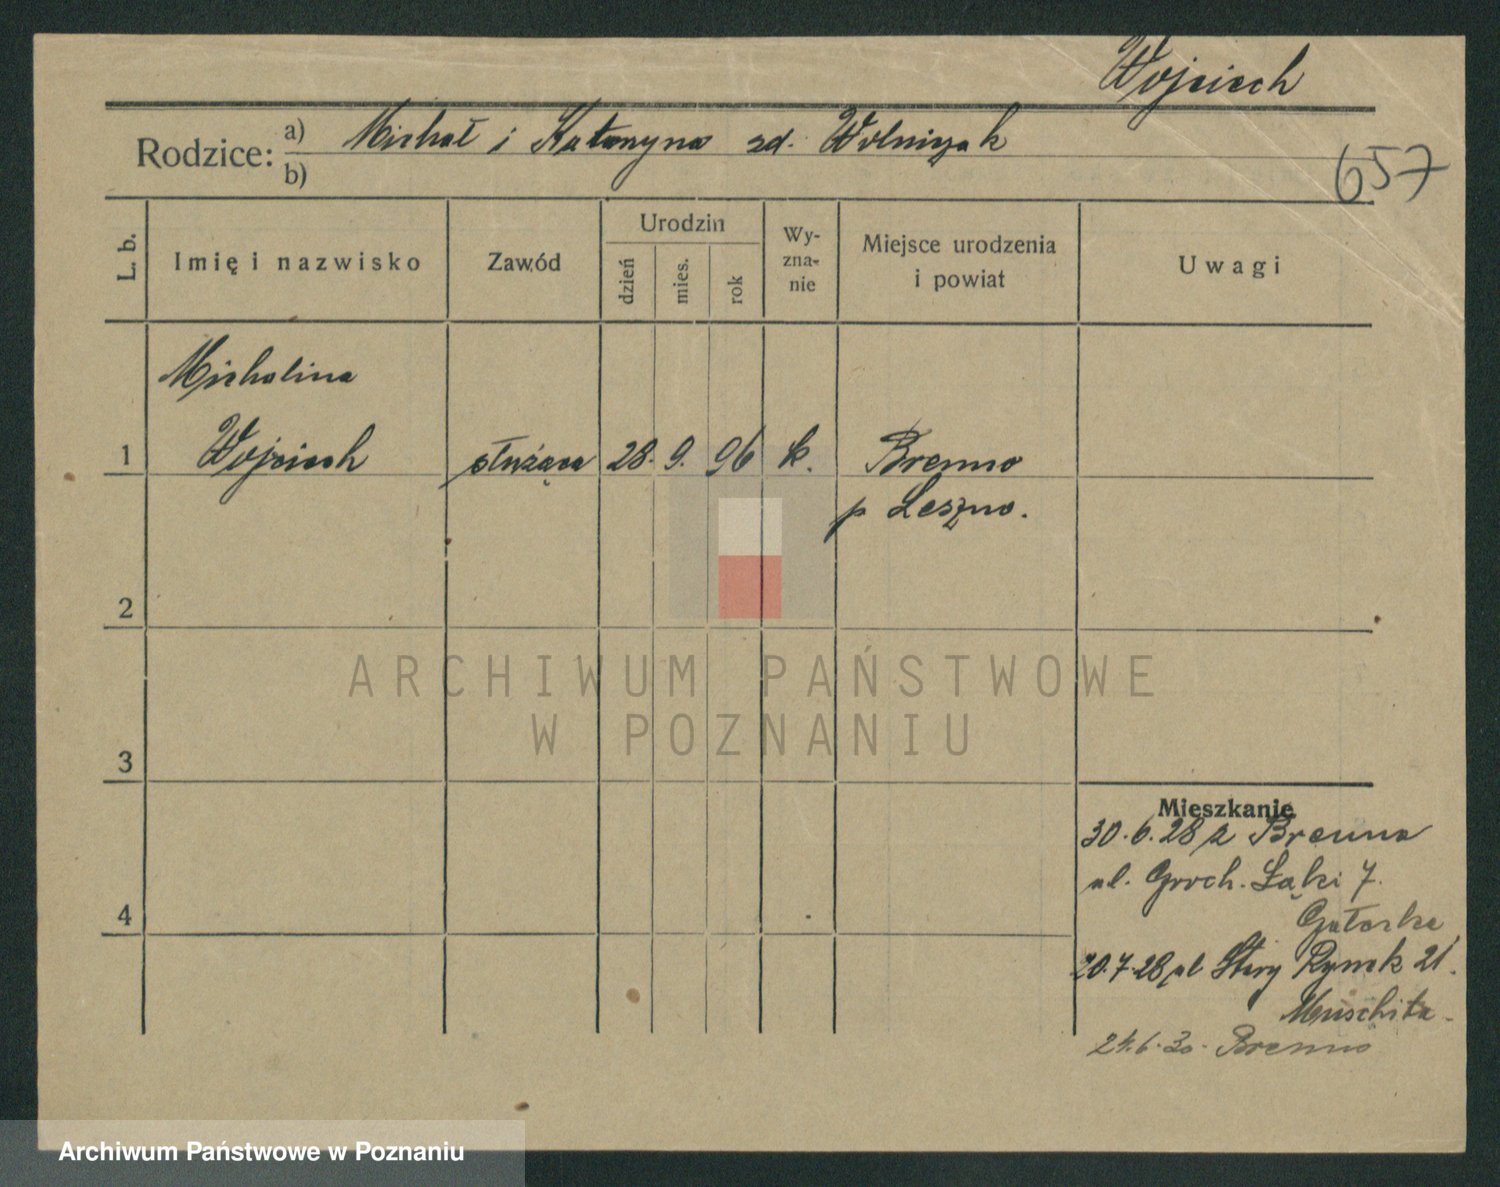 Wojciech
Rodzice: a) Michał i Katarzyna zd. Wolniczak
b)
657
L. b.
Imię i nazwisko
Zawód
Urodzin
dzień
mies.
rok
Wy-
zna-
nie
Miejsce urodzenia
i powiat
Uwagi
Michalina
1 Wojciech służąca 28. 9. 96 k. Brenno
p Leszno.
2
ARCHIWUM PAŃSTWOWE
W POZNANIU
3
Mieszkanie
30.6.28 z Brenna
ul. Groch. Łąki 7.
4
20.7.28 ul Stary Rynek 21.
24.6.30. Brenno
Archiwum Państwowe w Poznaniu